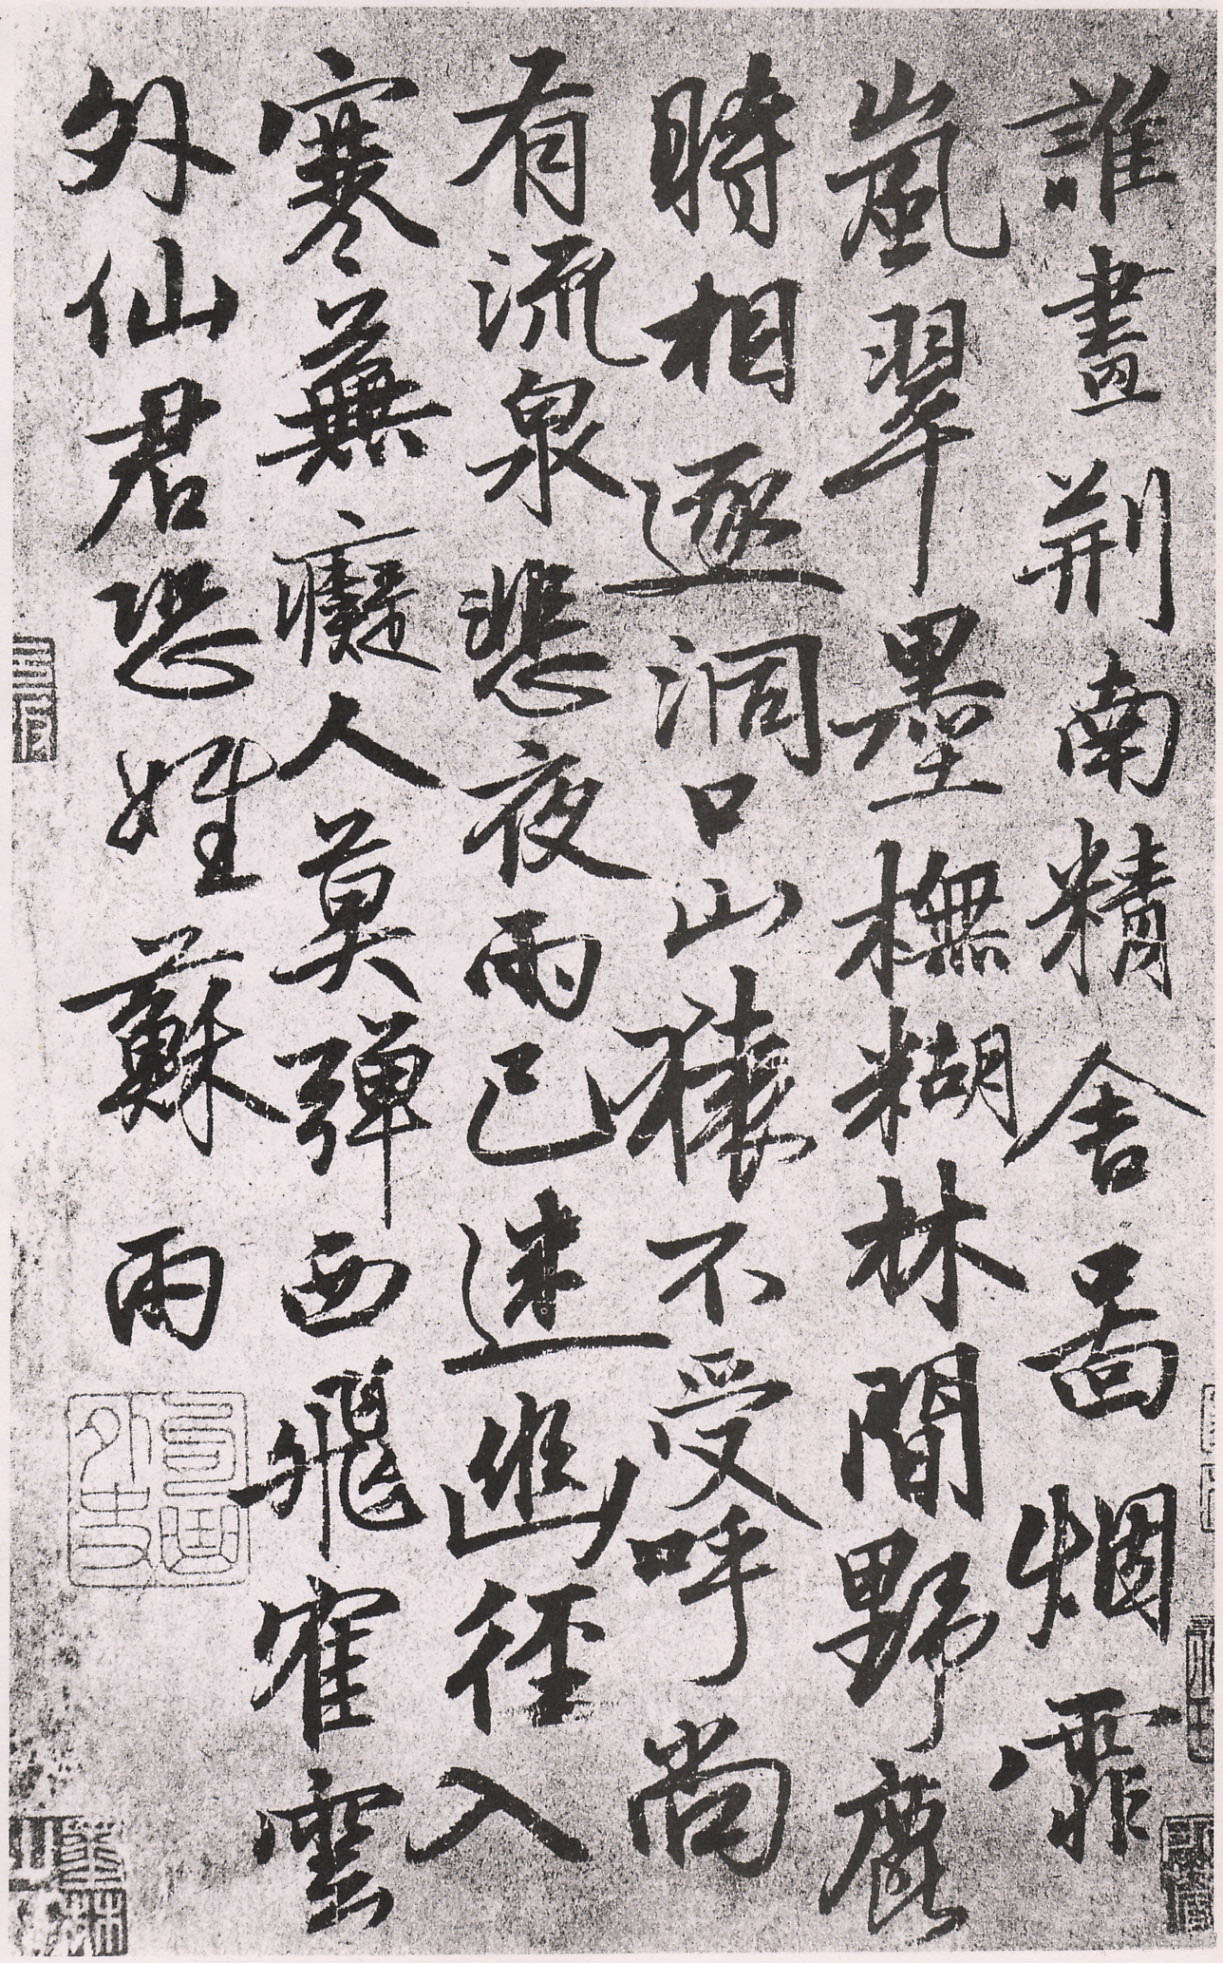 誰畫荆南精舍啚烟霏
嵐翠墨橅糊林間野麋
時相逐洞口山猿不受呼尚
有流泉悲夜雨已迷幽徑入
寒蕪癡人莫彈西飛隺雲
外仙君恐姓蘇 雨